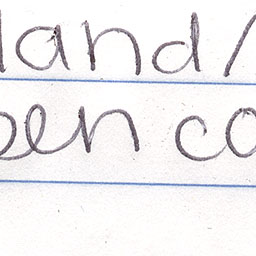 land/
pen co